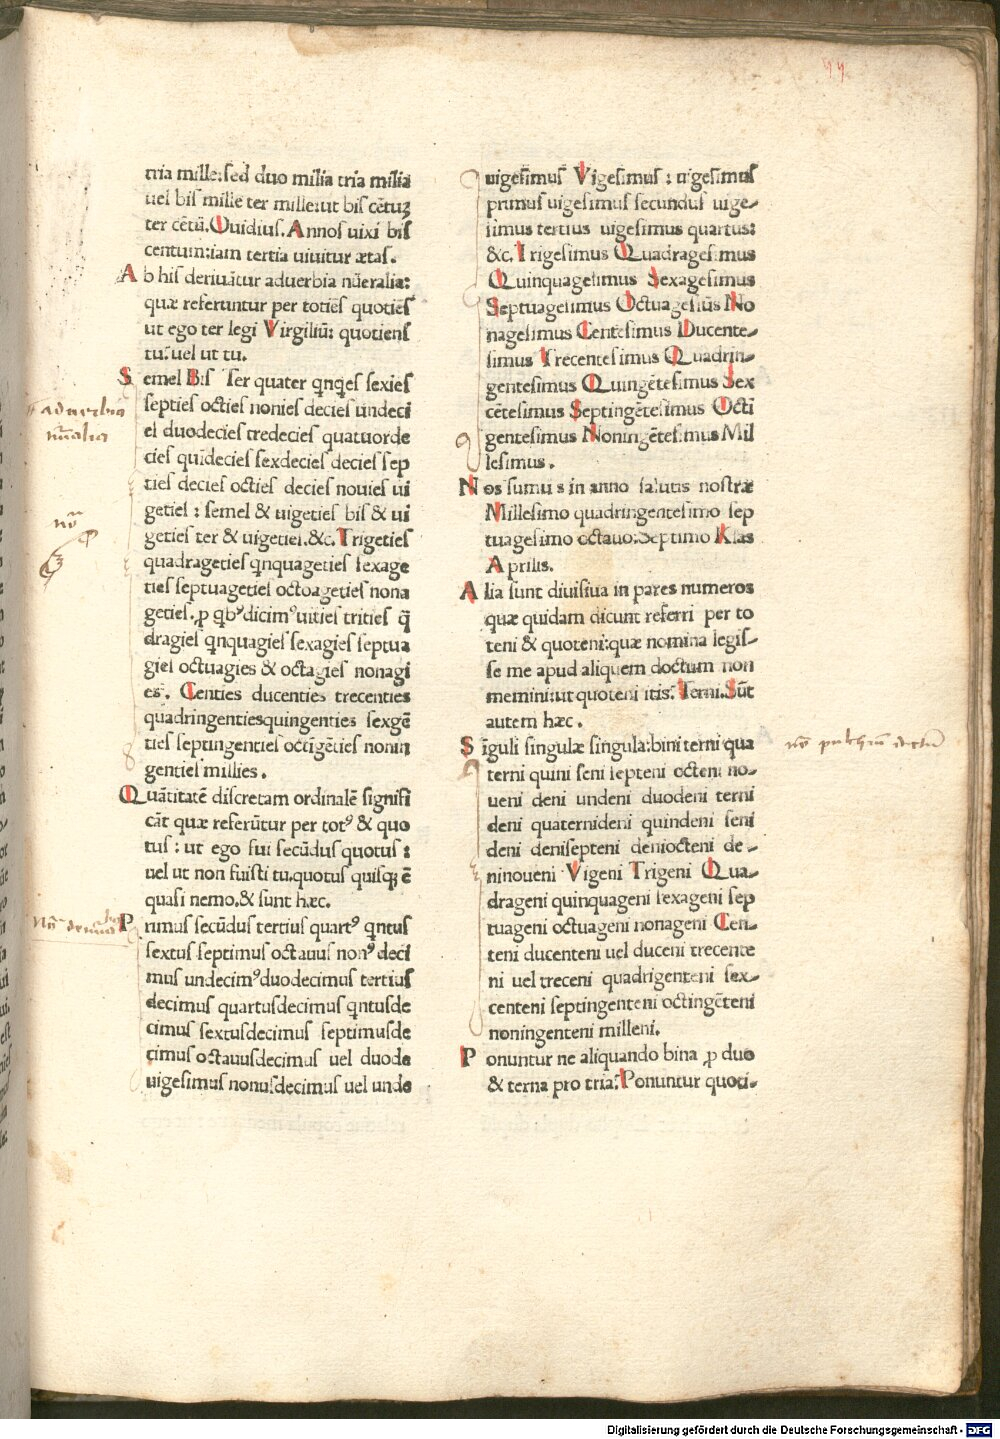 tria mille: sed duo milia tria milia
uel bis mille ter mille: ut bis cẽtuꝫ
ter cẽtũ. Ouidius. Annos uixi bis
centum: iam tertia uiuitur ætas.
Ab his deriuãtur aduerbia nũeralia:
quæ referuntur per toties quoties
ut ego ter legi Virgiliũ: quotiens
tu: uel ut tu.
Semel Bis Ter quater qnqes sexies
septies octies nonies decies undeci
es duodecies tredecies quatuorde
cies quĩdecies sexdecies decies sep
ties decies octies decies nouies ui
geties: semel & uigeties bis & ui
geties ter & uigeties. &c. Trigeties
quadrageties qnquageties sexage
ties septuageties octoageties nona
geties. ꝓ qbꝰ dicimꝰ uities trities q̃
dragies qnquagies sexagies septua
gies octuagies & octagies nonagi
es. Centies ducenties trecenties
quadringentiesquingenties sexgẽ
ties septingenties octĩgẽties nonin
genties millies.
Quãtitatẽ discretam ordinalẽ signifi
cãt quæ referũtur per totꝰ & quo
tus: ut ego fui secũdus quotus:
uel ut non fuisti tu. quotus quisqꝫ ẽ
quasi nemo. & sunt hæc.
Primus secũdus tertius quartꝰ qntus
sextus septimus octauus nonꝰ deci
mus undecimꝰ duodecimus tertius
decimus quartusdecimus qntusde
cimus sextusdecimus septimusde
cimus octauusdecimus uel duode
uigesimus nonusdecimus uel unde
uigesimus Vigesimus: uigesimus
primus uigesimus secundus uige-
simus tertius uigesimus quartus:
&c. Trigesimus Quadragesimus
Quinquagesimus Sexagesimus
Septuagesimus Octuagesiũs No
nagesimus Centesimus Ducente-
simus Trecentesimus Quadrin-
gentesimus Quingẽtesimus Sex
cẽtesimus Septingẽtesimus Octĩ
gentesimus Noningẽtesimus Mil
lesimus.
Nos sumus in anno salutis nostræ
Millesimo quadringentesimo sep
tuagesimo octauo: Septimo Klas
Aprilis.
Alia sunt diuisiua in pares numeros
quæ quidam dicunt referri per to
teni & quoteni: quæ nomina legis-
se me apud aliquem doctum non
memini: ut quoteni itis: Terni. Sũt
autem hæc.
Sĩguli singulæ singula: bini terni qua
terni quini seni septeni octeni no-
ueni deni undeni duodeni terni
deni quaternideni quindeni seni
deni denisepteni deniocteni de-
ninoueni Vigeni Trigeni Qua-
drageni quinquageni sexageni sep
tuageni octuageni nonageni Cen-
teni ducenteni uel duceni trecente
ni uel treceni quadrigenteni sex-
centeni septingenteni octingẽteni
noningenteni milleni.
Ponuntur ne aliquando bina ꝓ duo
& terna pro tria: Ponuntur quoti-
aduerbia
nũalia
Digitalisierung gefördert durch die Deutsche Forschungsgemeinschaft - DFG